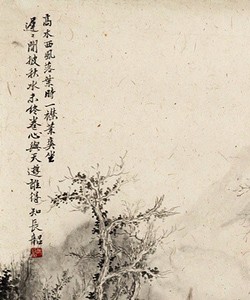 高木西風落葉時一襟蕭爽坐
遲〻閒披秋水未終卷心與天遊誰得知長韶